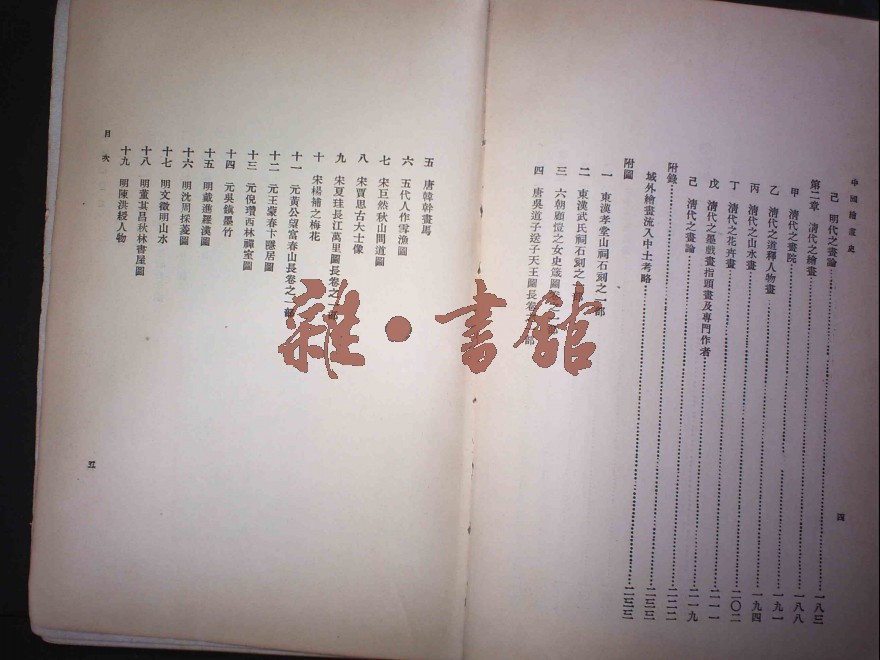 中國繪畫史
己 明代之畫論……一八三
第二章 清代之繪畫……一八八
甲 清代之畫院……一八八
乙 清代之道釋人物畫……一九一
丙 清代之山水畫……一九四
丁 清代之花卉畫……二〇二
戊 清代之墨戲畫指頭畫及專門作者……二一一
己 清代之畫論……二一九
附錄……二二二
域外繪畫流入中土考略……二三三
附圖……二三三
一 東漢孝堂山祠石刻之一部
二 東漢武氏祠石刻之一部
三 六朝顧愷之女史箴圖卷之一部
四 唐吳道子送子天王圖長卷之一部
四
五 唐韓幹畫馬
六 五代人作雪漁圖
七 宋巨然秋山問道圖
八 宋賈思古大士像
九 宋夏珪長江萬里圖長卷之一部
十 宋楊補之梅花
十一 元黃公望富春山長卷之一部
十二 元王蒙春卞隱居圖
十三 元倪瓚西林禪室圖
十四 元吳鎮墨竹
十五 明戴進羅漢圖
十六 明沈周採菱圖
十七 明文徵明山水
十八 明董其昌秋林書屋圖
十九 明陳洪綬人物
目次
五
雜·書館